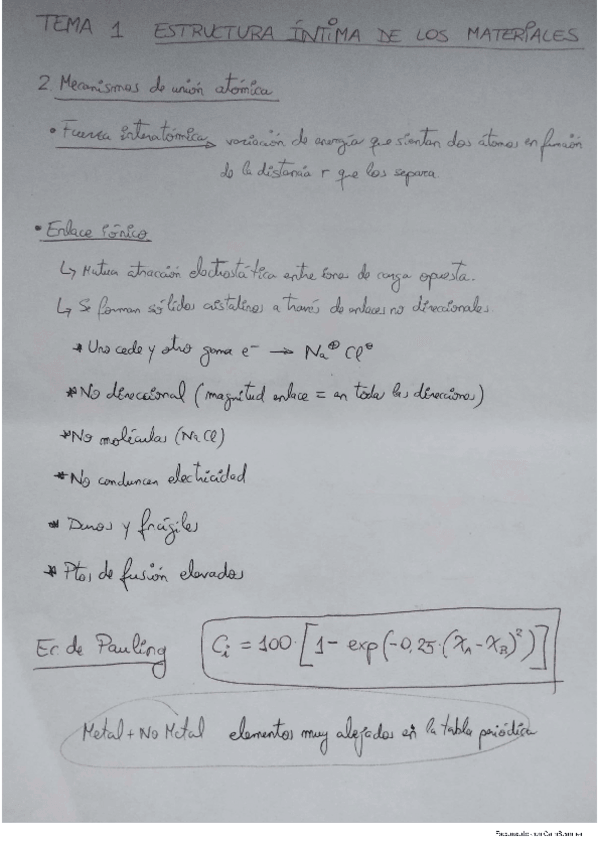 TEMA 1 ESTRUCTURA ÍNTIMA DE LOS MATERIALES
2. Mecanismos de unión atómica
• Fuerza interatómica → variación de energía que sientan dos átomos en función
de la distancia r que los separa.
• Enlace iónico
↳ Mutua atracción electrostática entre iones de carga opuesta.
↳ Se forman sólidos cristalinos a través de enlaces no direccionales.
* Uno cede y otro gana e⁻ → Na⊕ Cl⊖
* No direccional (magnitud enlace = en toda las direcciones)
* No moléculas (NaCl)
* No conducen electricidad
* Duros y frágiles
* Ptos de fusión elevados
Ec. de Pauling Ci = 100·[1 - exp(-0,25·(χA - χB)²)]
Metal + No Metal elementos muy alejados en la tabla periódica
Escaneado con CamScanner